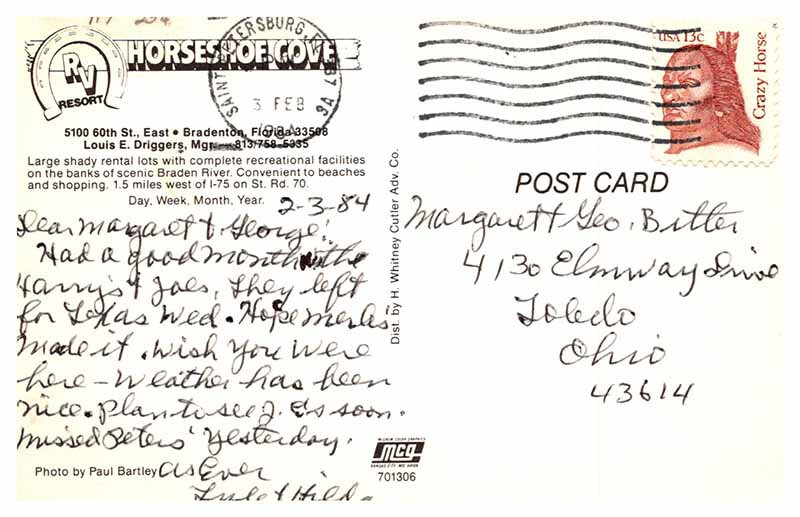 RV
RESORT
HORSESHOE COVE
SAINT PETERSBURG, FL
3 FEB
1984
5100 60th St., East • Bradenton, Florida 33508
Louis E. Driggers, Mgr. 813/758-5335
Large shady rental lots with complete recreational facilities
on the banks of scenic Braden River. Convenient to beaches
and shopping. 1.5 miles west of I-75 on St. Rd. 70.
Day, Week, Month, Year.
2-3-84
Dear Margaret & George:
Had a good month with the
Harrys & Joes, They left
for Texas Wed. Hope
made it. Wish You Were
here - Weather has been
nice. Plan to see J. E's soon.
Missed Peters' Yesterday.
As Ever
& Hilda
Photo by Paul Bartley
McGREW COLOR GRAPHICS
mcg
KANSAS CITY, MO. 64108
701306
Dist. by H. Whitney Cutler Adv. Co.
USA 13c
Crazy Horse
POST CARD
Margaret & Geo. Bitter
4130 Elmway Drive
Toledo
Ohio
43614